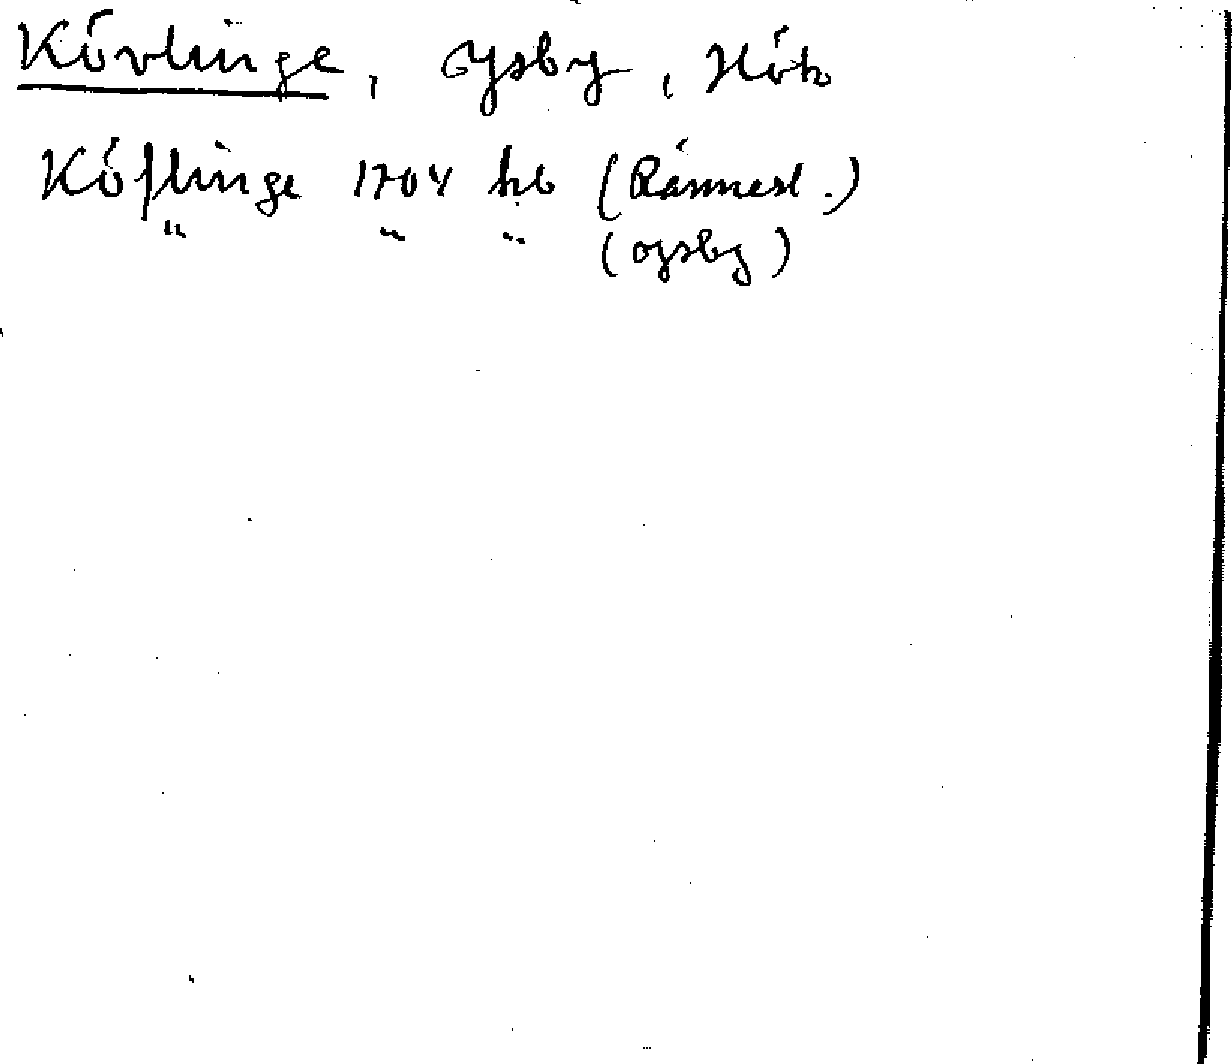 Kövlinge, Ysby, Hök
Köflinge 1704 hb (Rännesl.)
" " " (Ysby)